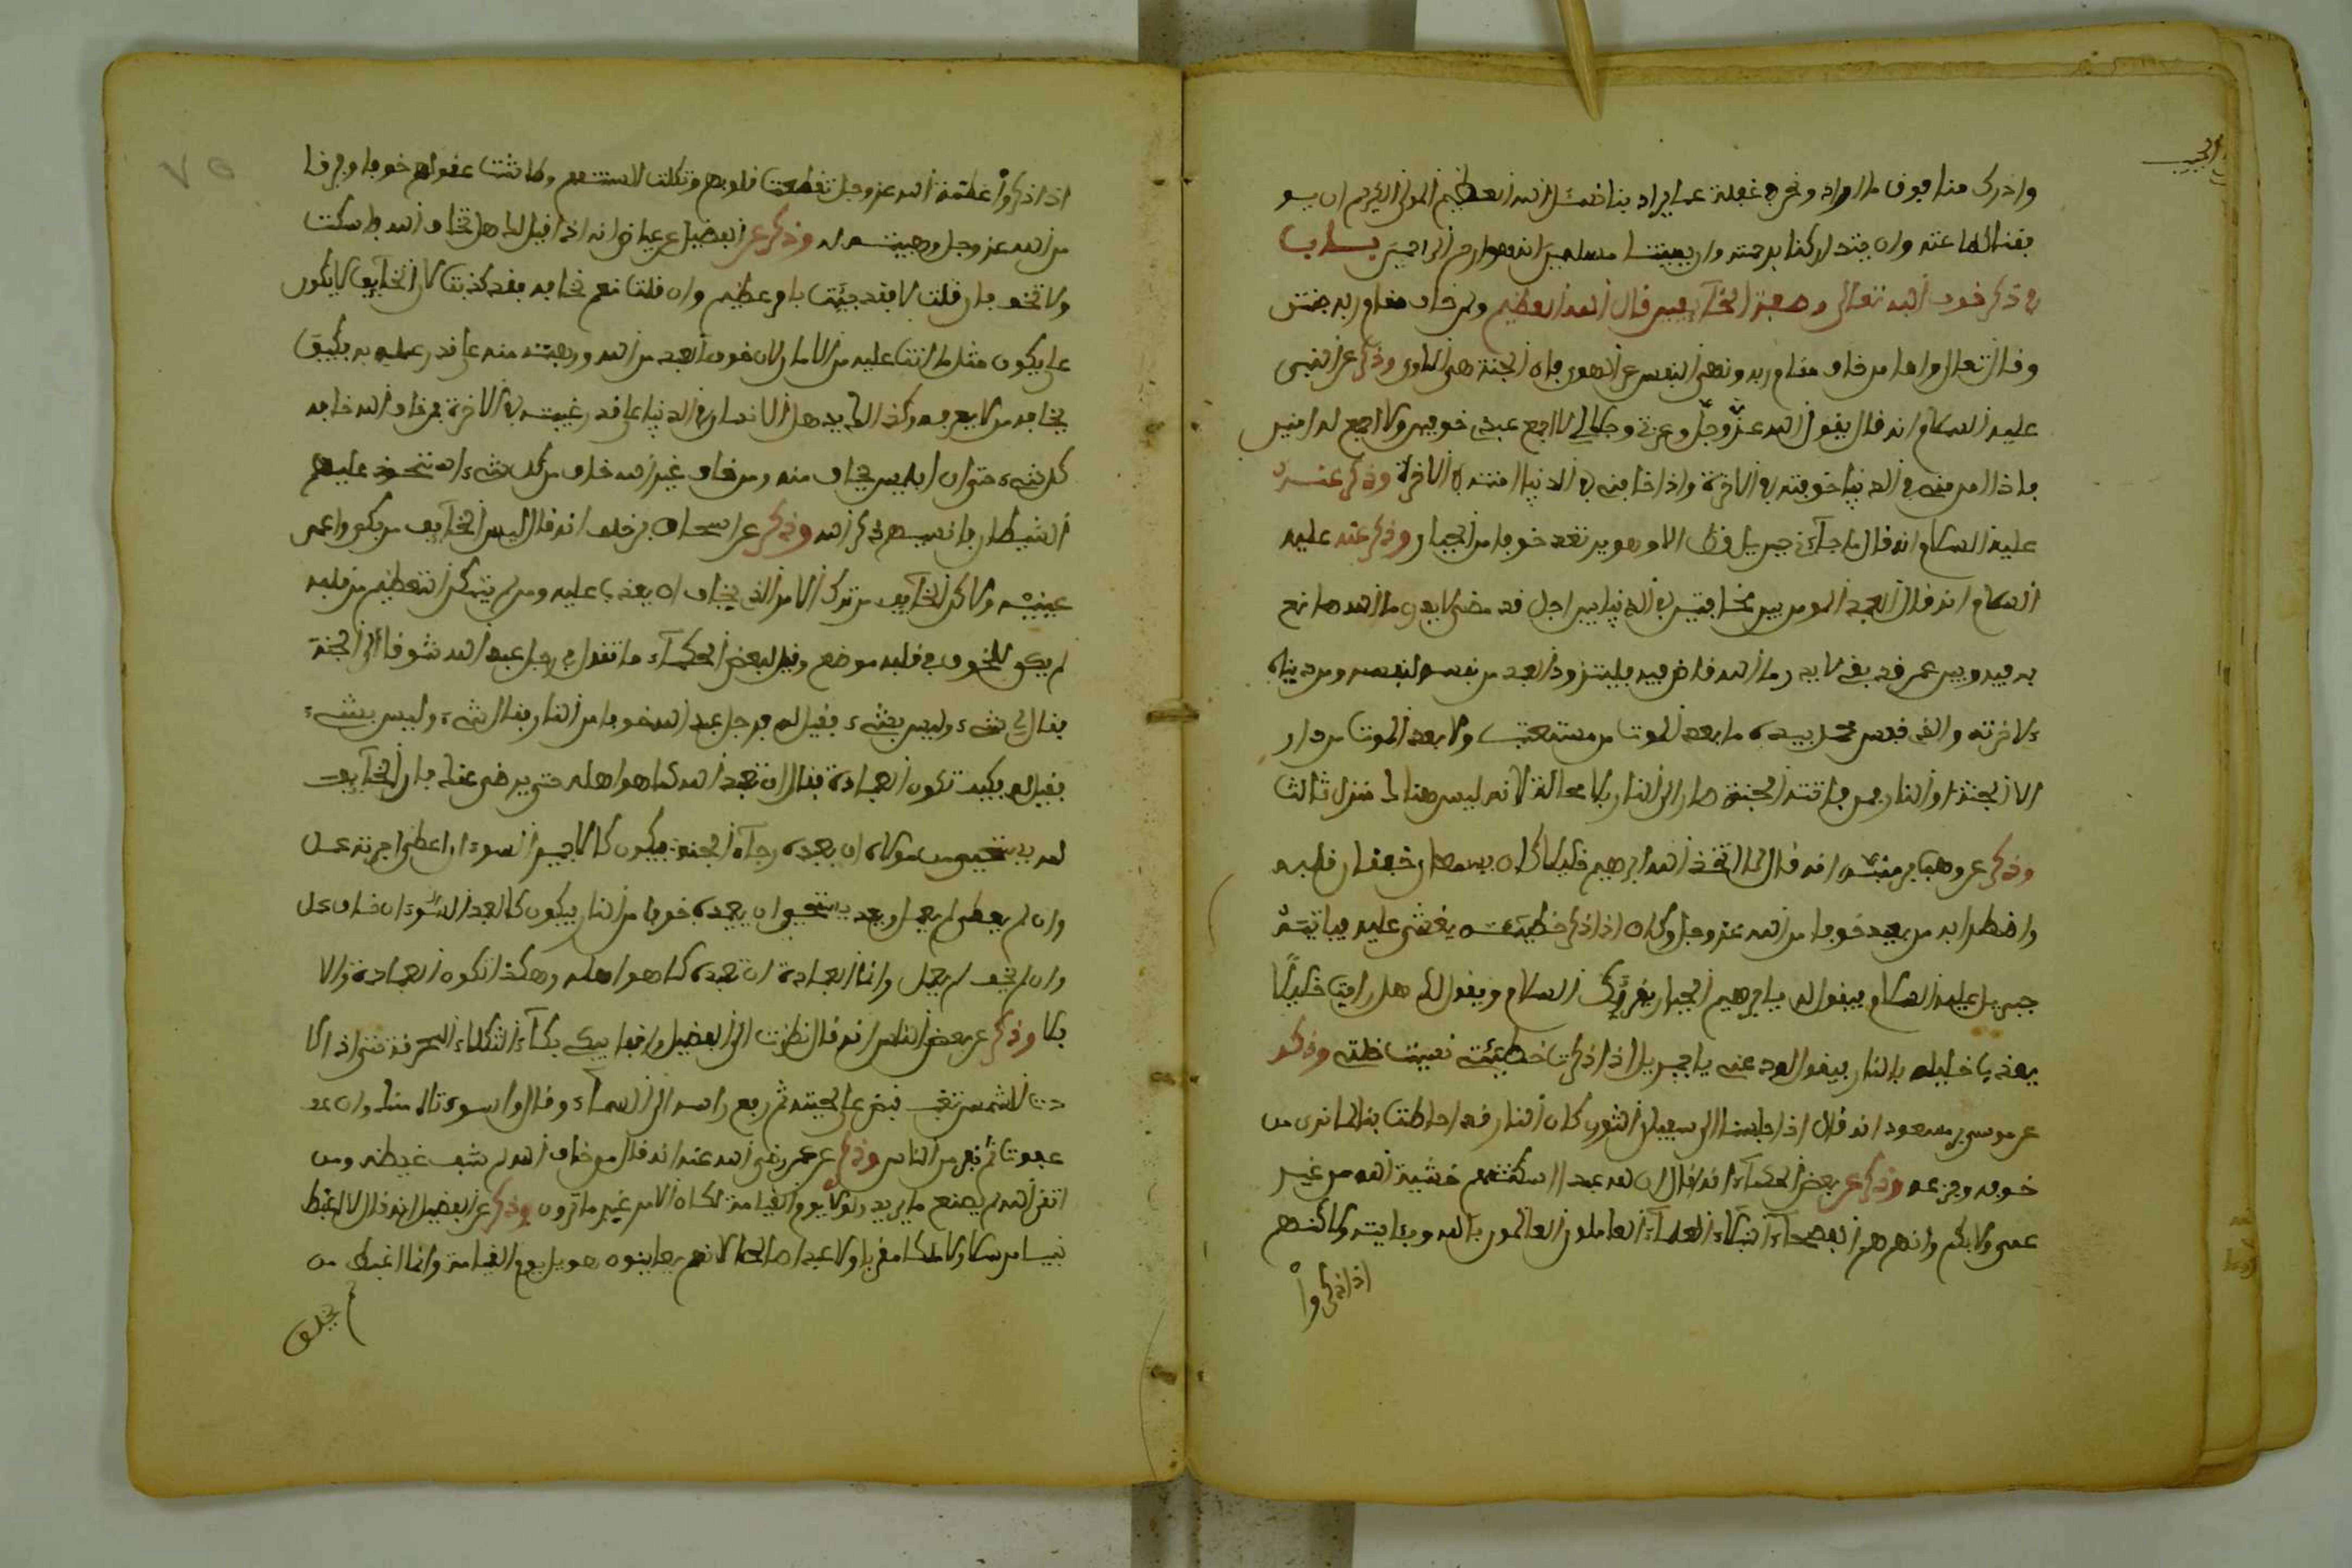 وادرك منا فوق ما اراد ونحن في غفلة عما يراد بنا فنسئل الله العظيم المولى الكريم ان يو
فقنا لطاعته وان يتداركنا برحمته وان يميتنا مسلمين انه هو ارحم الراحمين باب
في ذكر خوف الله تعالى وصفة الخآيفين قال الله العظيم ولمن خاف مقام ربه جنتن
وقال تعالى واما من خاف مقام ربه ونهى النفس عن الهوى فان الجنة هي الماوى وذكر عن النبي
عليه السلام انه قال يقول الله عز وجل وعزتي وجلالي لا اجمع على عبدي خوفين ولا اجمع له امنين
فاذا امنني في الدنيا خوفته في الاخرة واذا خافني في الدنيا امنته في الاخرة وذكر عنه
عليه السلام انه قال ما جآءني جبريل قط الا وهو يرتعد خوفا من الجبار وذكر عنه عليه
السلام انه قال العبد المومن بين مخافتين في الدنيا بين اجل قد مضى لا يدري ما الله صانع
به فيه وبين عمر قد بقي لا يدري ما الله قاض فيه فليتزود العبد من نفسه لنفسه ومن دنياه
لاخرته والذي نفس محمد بيده ما بعد الموت من مستعتب ولا بعد الموت من دار
الا الجنة او النار فمن فاتته الجنة صار الى النار بلا محالة لانه ليس هناك منزل ثالث
وذكر عن وهب بن منبه انه قال لما اتخذ الله ابرهيم خليلا كان يسمع خفقان قلبه
واضطرابه من بعيد خوفا من الله عز وجل وكان اذا ذكر خطيئته يغشى عليه فياتيه
جبريل عليه السلام فيقول له يا ابرهيم الجبار يقرئك السلام ويقول لك هل رايت خليلا
يعذب خليله بالنار فيقول له يا جبريل اذا ذكرت خطيئتي نسيت خلته وذكر
عن موسى بن مسعود انه قال اذا جلسنا الى سفيان الثوري كان النار قد احاطت بنا لما نرى من
خوفه وجزعه وذكر عن بعض الحكمآء انه قال ان لله عبادا اسكتتهم خشية الله من غير
عمي ولا بكم وانهم هم الفصحآء النبلاء العلمآء العاملون العالمون بالله وباياته ولاكنهم
اذا ذكروا
اذا ذكروا عظمة الله عز وجل تقطعت قلوبهم وكلت السنتهم وطاشت عقولهم خوفا وفرقا
من الله عز وجل وهيبة له وذكر عن الفضيل بن عياض انه اذا قيل لك هل تخاف الله فاسكت
ولا تخف فان قلت لا فقد جيت بامر عظيم وان قلت نعم نخافه فقد كذبت لان الخآيف لا يكون
على مثل ما انت عليه من الامل لان خوف العبد من الله ورهبته منه على قدر علمه به فكيف
يخافه من لا يعرفه وكذلك زهد الانسان في الدنيا على قدر رغبته في الاخرة فمن خاف الله خافه
كل شيء حتى ان ابليس يخاف منه ومن خاف غير الله خاف من كل شيء استحوذ عليهم
الشيطان فانسيهم ذكر الله وذكر عن اسحاق بن خلف انه قال ليس الخآيف من بكى وا عصر
عينيه ولاكن الخآيف من ترك الامر الذي يخاف ان يعذب عليه ومن لم يتمكن التعظيم من قلبه
لم يكن للخوف في قلبه موضع وقيل لبعض الحكمآء ما تقول في رجل عبد الله شوقا الى الجنة
فقال لي شيء وليس بشيء فقيل له فرجل عبد الله خوفا من النار فقال شيء وليس بشيء
فقيل له فكيف تكون العبادة فقال ان تعبد الله كما هو اهله حتى يرضى عنك فان الخآيف
لله يستحيي من مولاه ان يعبده رجآء الجنة فيكون كالاجير السوء ان اعطي اجرته عمل
وان لم يعط لم يعمل وعبد يستحيي ان يعبده خوفا من النار فيكون كالعبد السوء ان خاف عمل
وان لم يخف لم يعمل وانما العبادة ان تعبده كما هو اهله وهكذا تكون العبادة والا
فلا وذكر عن بعض الناس انه قال نظرت الى الفضيل واقفا يبكي بكآء الثكلاء المحرقة حتى اذا كا
دت الشمس تغرب قبض على لحيته ثم رفع راسه الى السمآء وقال واسوءتاه منك وان
عفوت ثم نفر مع الناس وذكر عن عمر رضي الله عنه انه قال من خاف الله لم يشف غيظه ومن
اتقى الله لم يصنع ما يريد ولولا يوم القيامة لكان الامر غير ما ترون وذكر عن الفضيل انه قال لا اغبط
نبيا مرسلا ولا ملكا مقربا ولا عبدا صالحا لانهم يعاينون هول يوم القيامة وانما اغبط من
لم يخلق